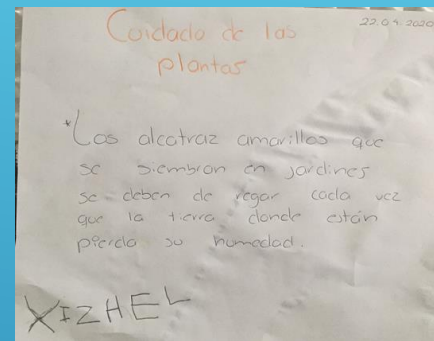 Cuidado de las
22.09.2020
plantas
*Los alcatraz amarillos que
se siembran en jardines
se deben de regar cada vez
que la tierra donde están
pierda su humedad.
XIZHEL